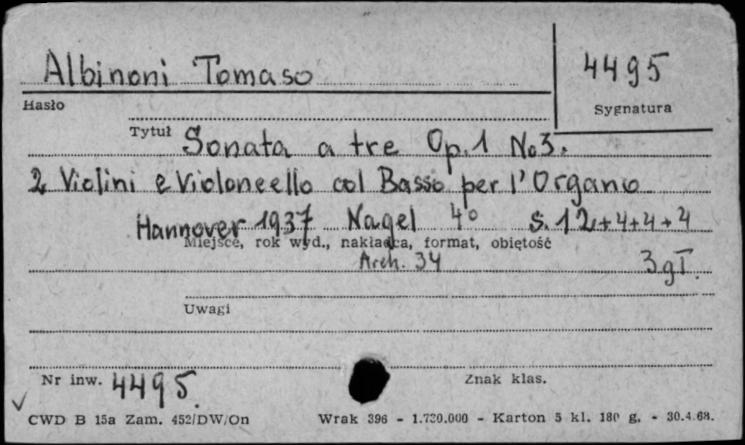 Albinoni Tomaso
4495
Hasło
Sygnatura
Tytuł Sonata a tre Op.1 No3.
2 Violini e Violoncello col Basso per l'Organo
Hannover 1937 Nagel 4° S. 12+4+4+4
Miejsce, rok wyd., nakładca, format, objętość
Arch. 34 3 gł.
Uwagi
Nr inw. 4495. Znak klas.
CWD B 15a Zam. 452/DW/On Wrak 396 - 1.720.000 - Karton 5 kl. 180 g. - 30.4.68.